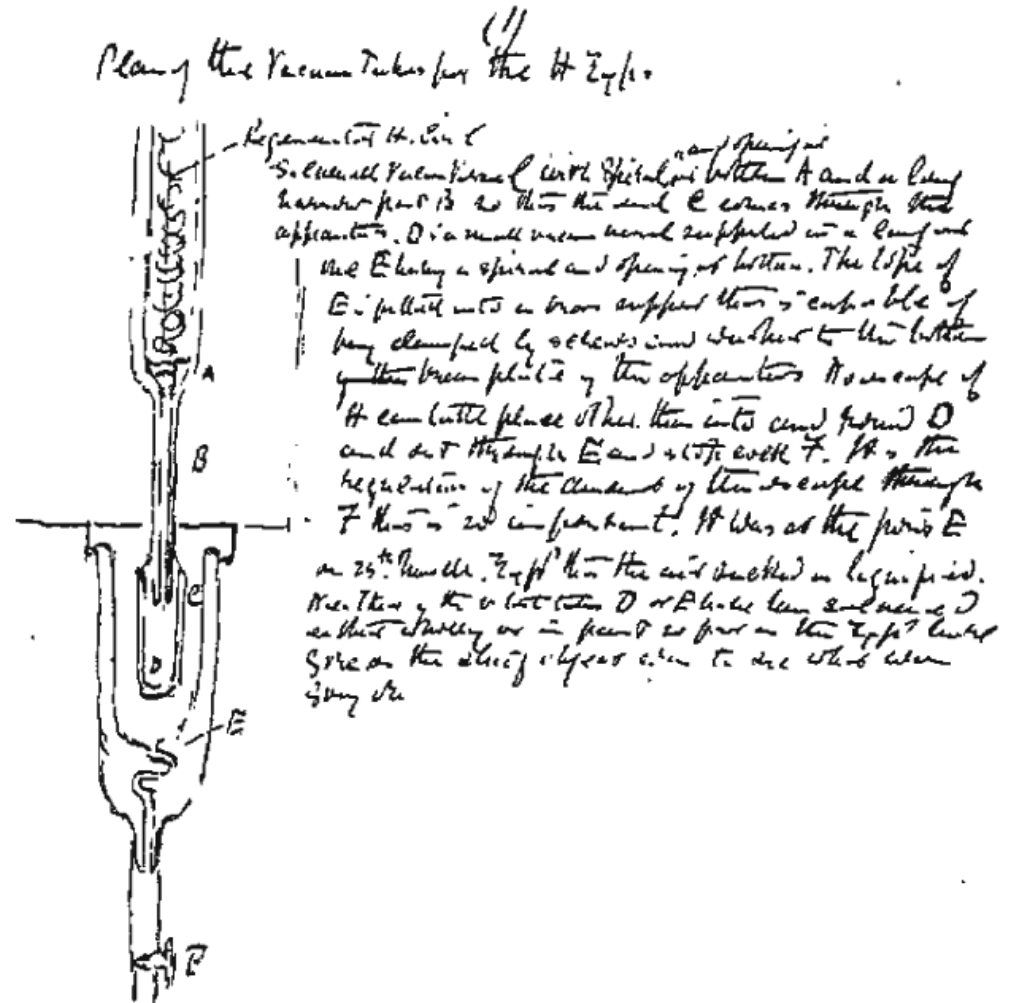 (1)
Plan of the Vacuum Tubes for the H Expt.
Regenerator H. Coil
and opening at
Silvered Vacuum Vessel with Spiral bottom A and a long
narrow part B so that the end C comes through the
apparatus. D is a small vacuum vessel supported in a long
one E having a spiral and opening at bottom. The top of
E is fitted into a brass support that is capable of
being clamped by screws and washer to the bottom
of the brass plate of the apparatus No escape of
H can take place other than into and round D
and out through E and stop cock F. It is the
regulation of the amount of this escape through
F that is so important. It was at the point E
on 25th Expt that the air
Neither of the D or E have been silvered
either wholly or in part so far as the Expts have
gone as the chief object was to see what was
going on
A
B
C
D
E
F